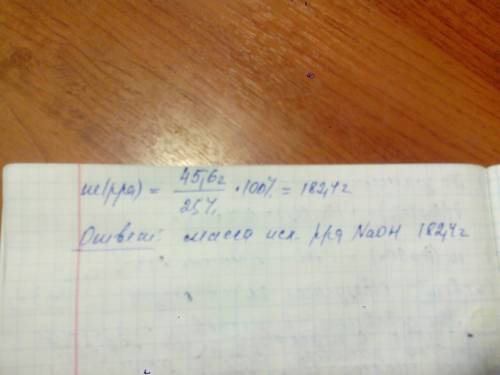 m(р-ра) = 45,6г / 25% · 100% = 182,4г
Ответ: масса исх. р-ра NaOH 182,4г